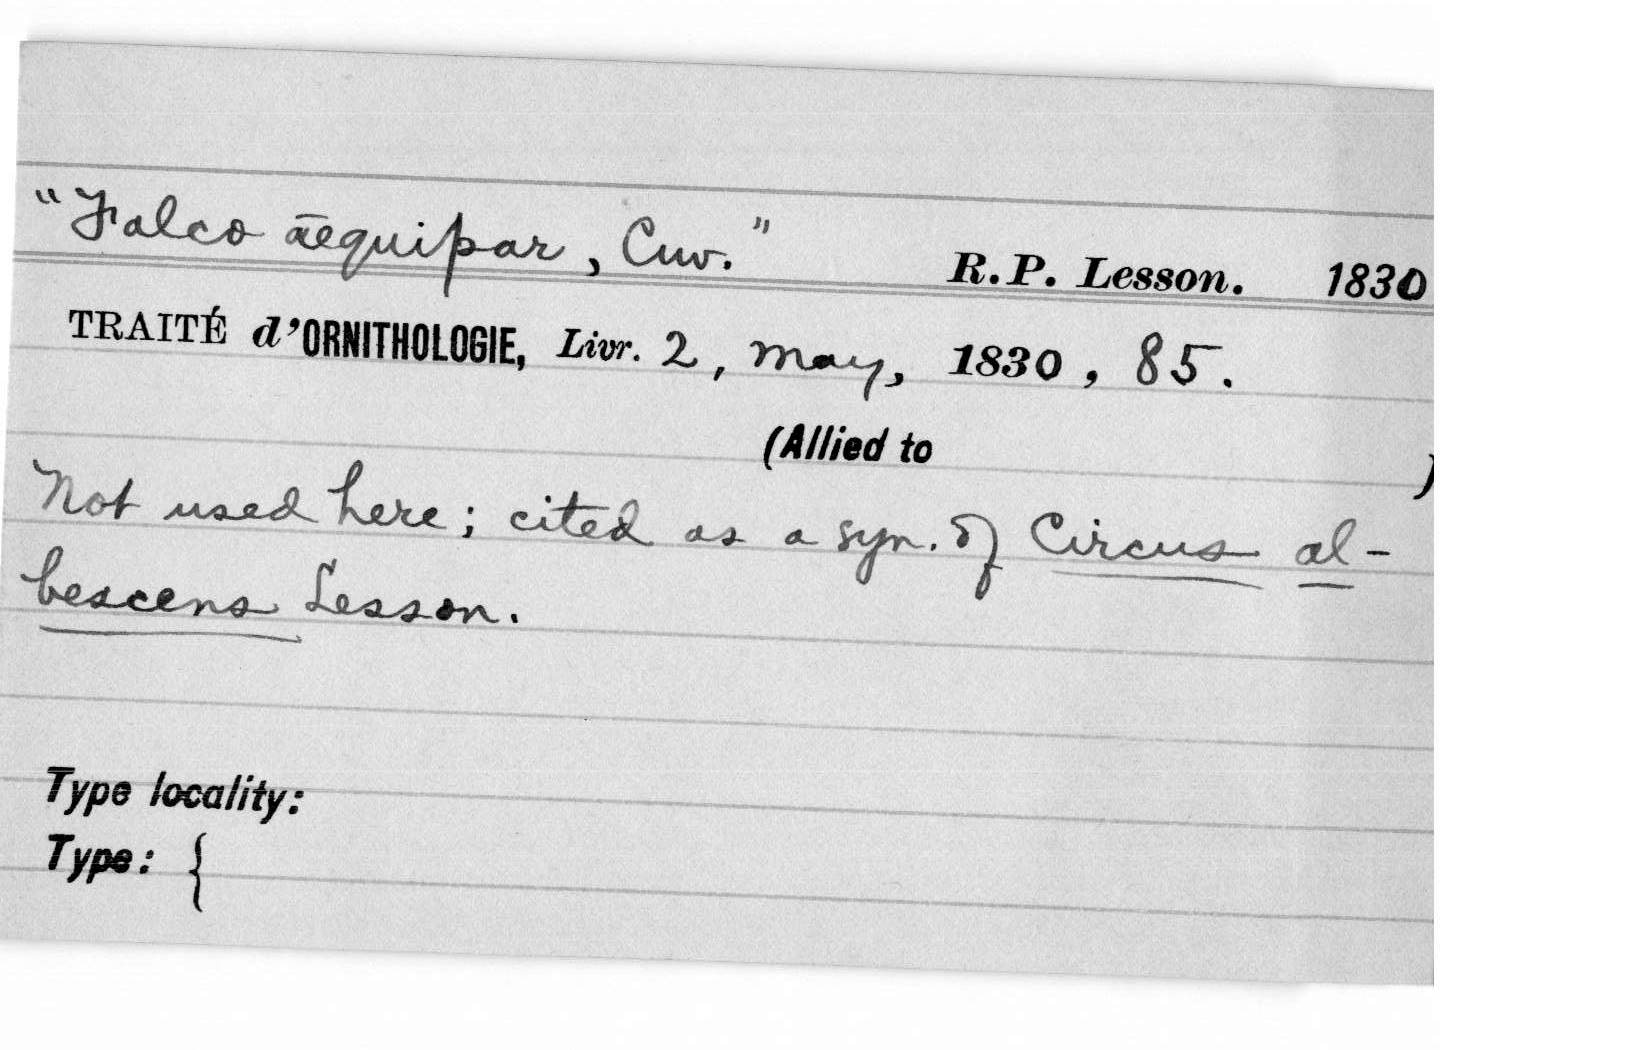 "Falco aequipar, Cuv." R.P. Lesson. 1830
TRAITÉ d'ORNITHOLOGIE, Livr. 2, May, 1830, 85.
(Allied to )
Not used here; cited as a syn. of Circus al-
bescens Lesson.
Type locality:
Type: {